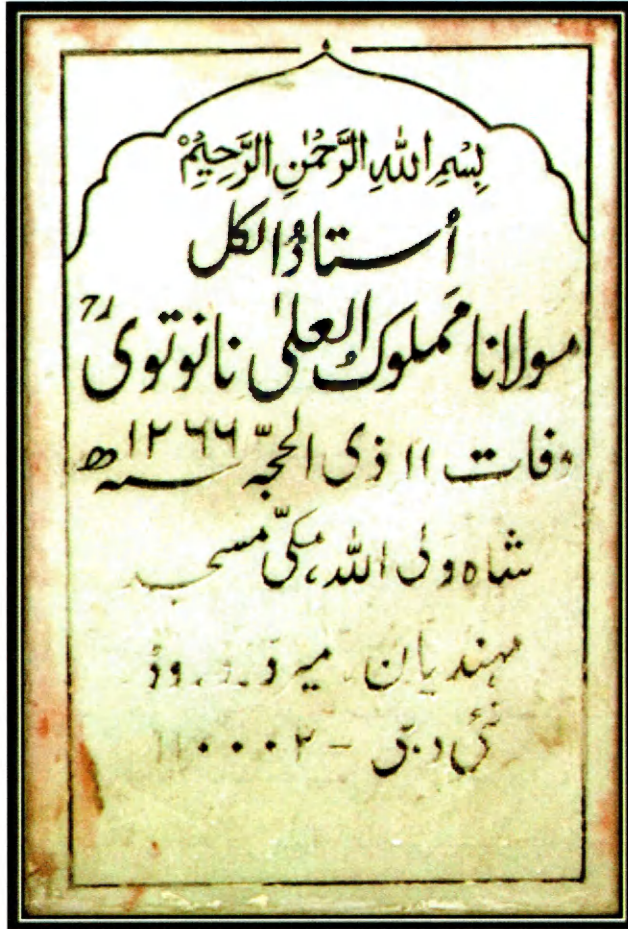 بِسْمِ اللهِ الرَّحْمٰنِ الرَّحِيْمِ
اُستاذُ الکل
مولانا مَملوکُ العلیٰ نانوتوی ؒ
وفات ۱۱ ذی الحجّہ ۱۲۶۶ سنہ ھ
شاہ ولی اللہ، مکّی مسجد
مہندیان، میر درد روڈ
نئی دہلی - ۱۱۰۰۰۲